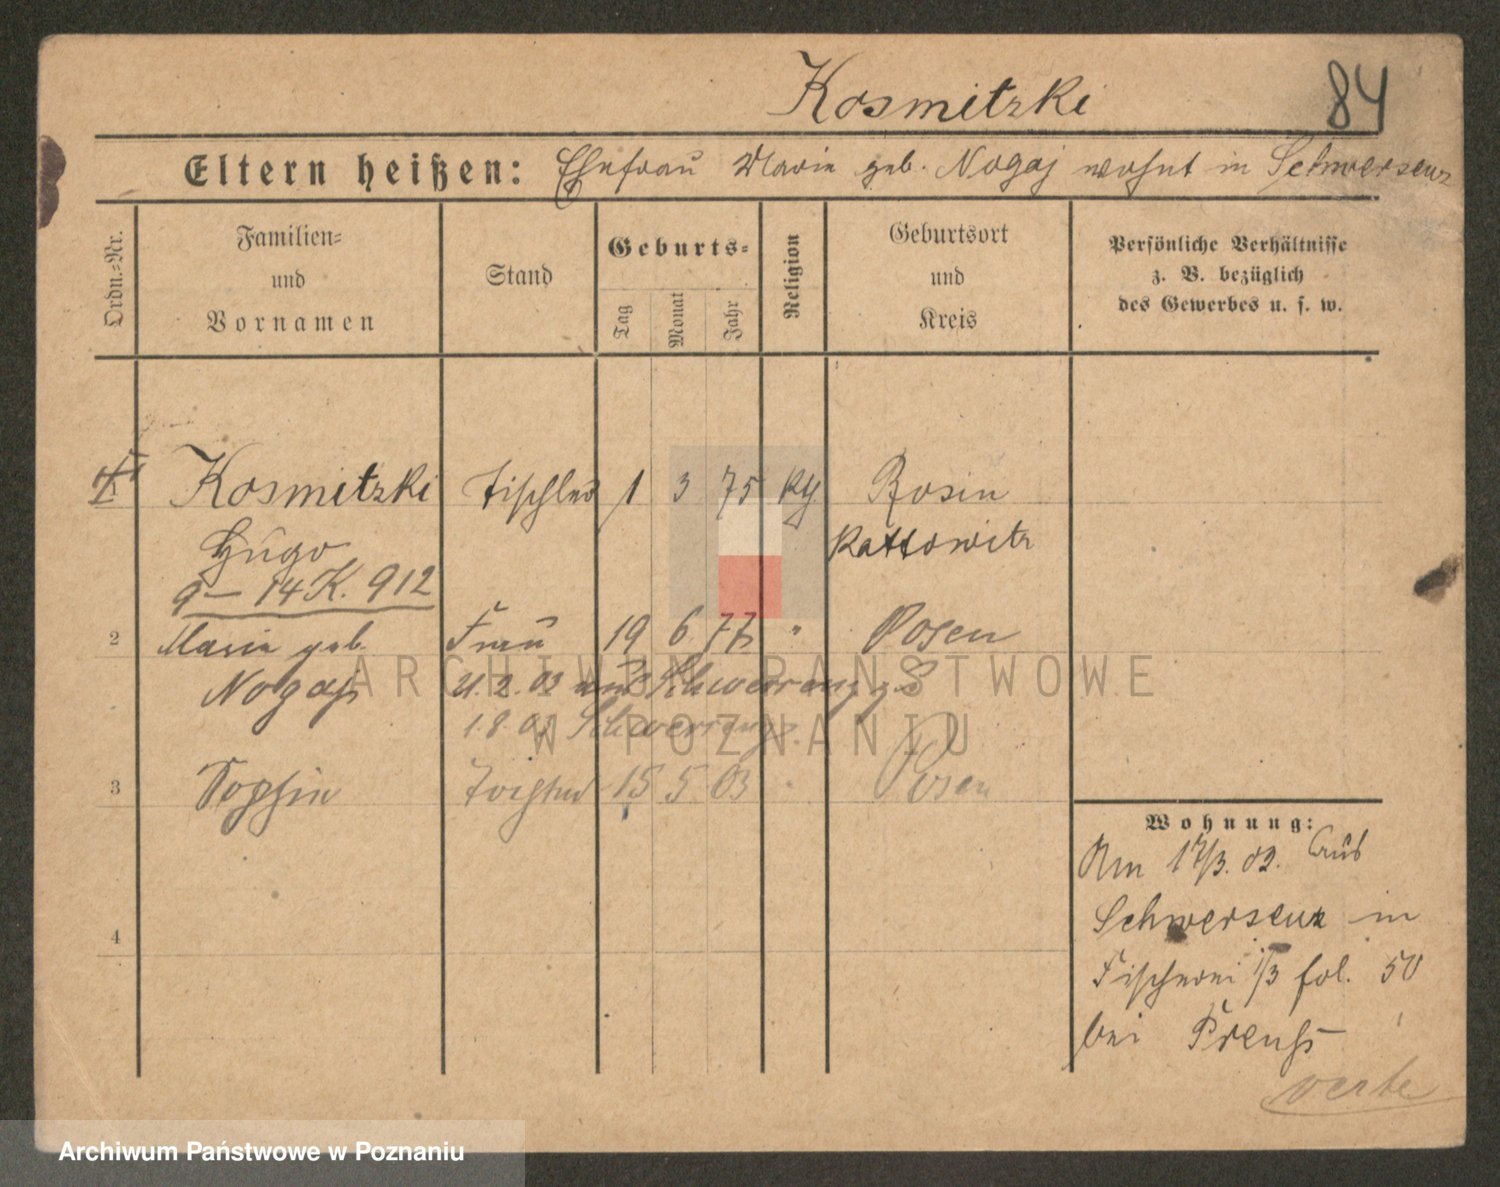 Kosmitzki 84
Eltern heißen: Ehefrau Marie geb. Nogaj wohnt in Schwersenz
Ordn.-Nr.
Familien-
und
Vornamen
Stand
Geburts-
Tag
Monat
Jahr
Religion
Geburtsort
und
Kreis
Persönliche Verhältnisse
z. B. bezüglich
des Gewerbes u. s. w.
Kosmitzki Tischler 1 3 75 kth Rosin
Hugo Kattowitz
9 – 14 K. 912
2 Marie geb. Frau 19 6 77 " Posen
Nogaj 21.2.03 aus Schwersenz
1.8.03 Schwersenz
3 Sophie Tochter 15 5 03 " Posen
4
Wohnung:
Am 17/3. 02. aus
Schwersenz in
Fischerei 1/3 fol. 50
bei Preuß
verte
ARCHIWUM PAŃSTWOWE
W POZNANIU
Archiwum Państwowe w Poznaniu